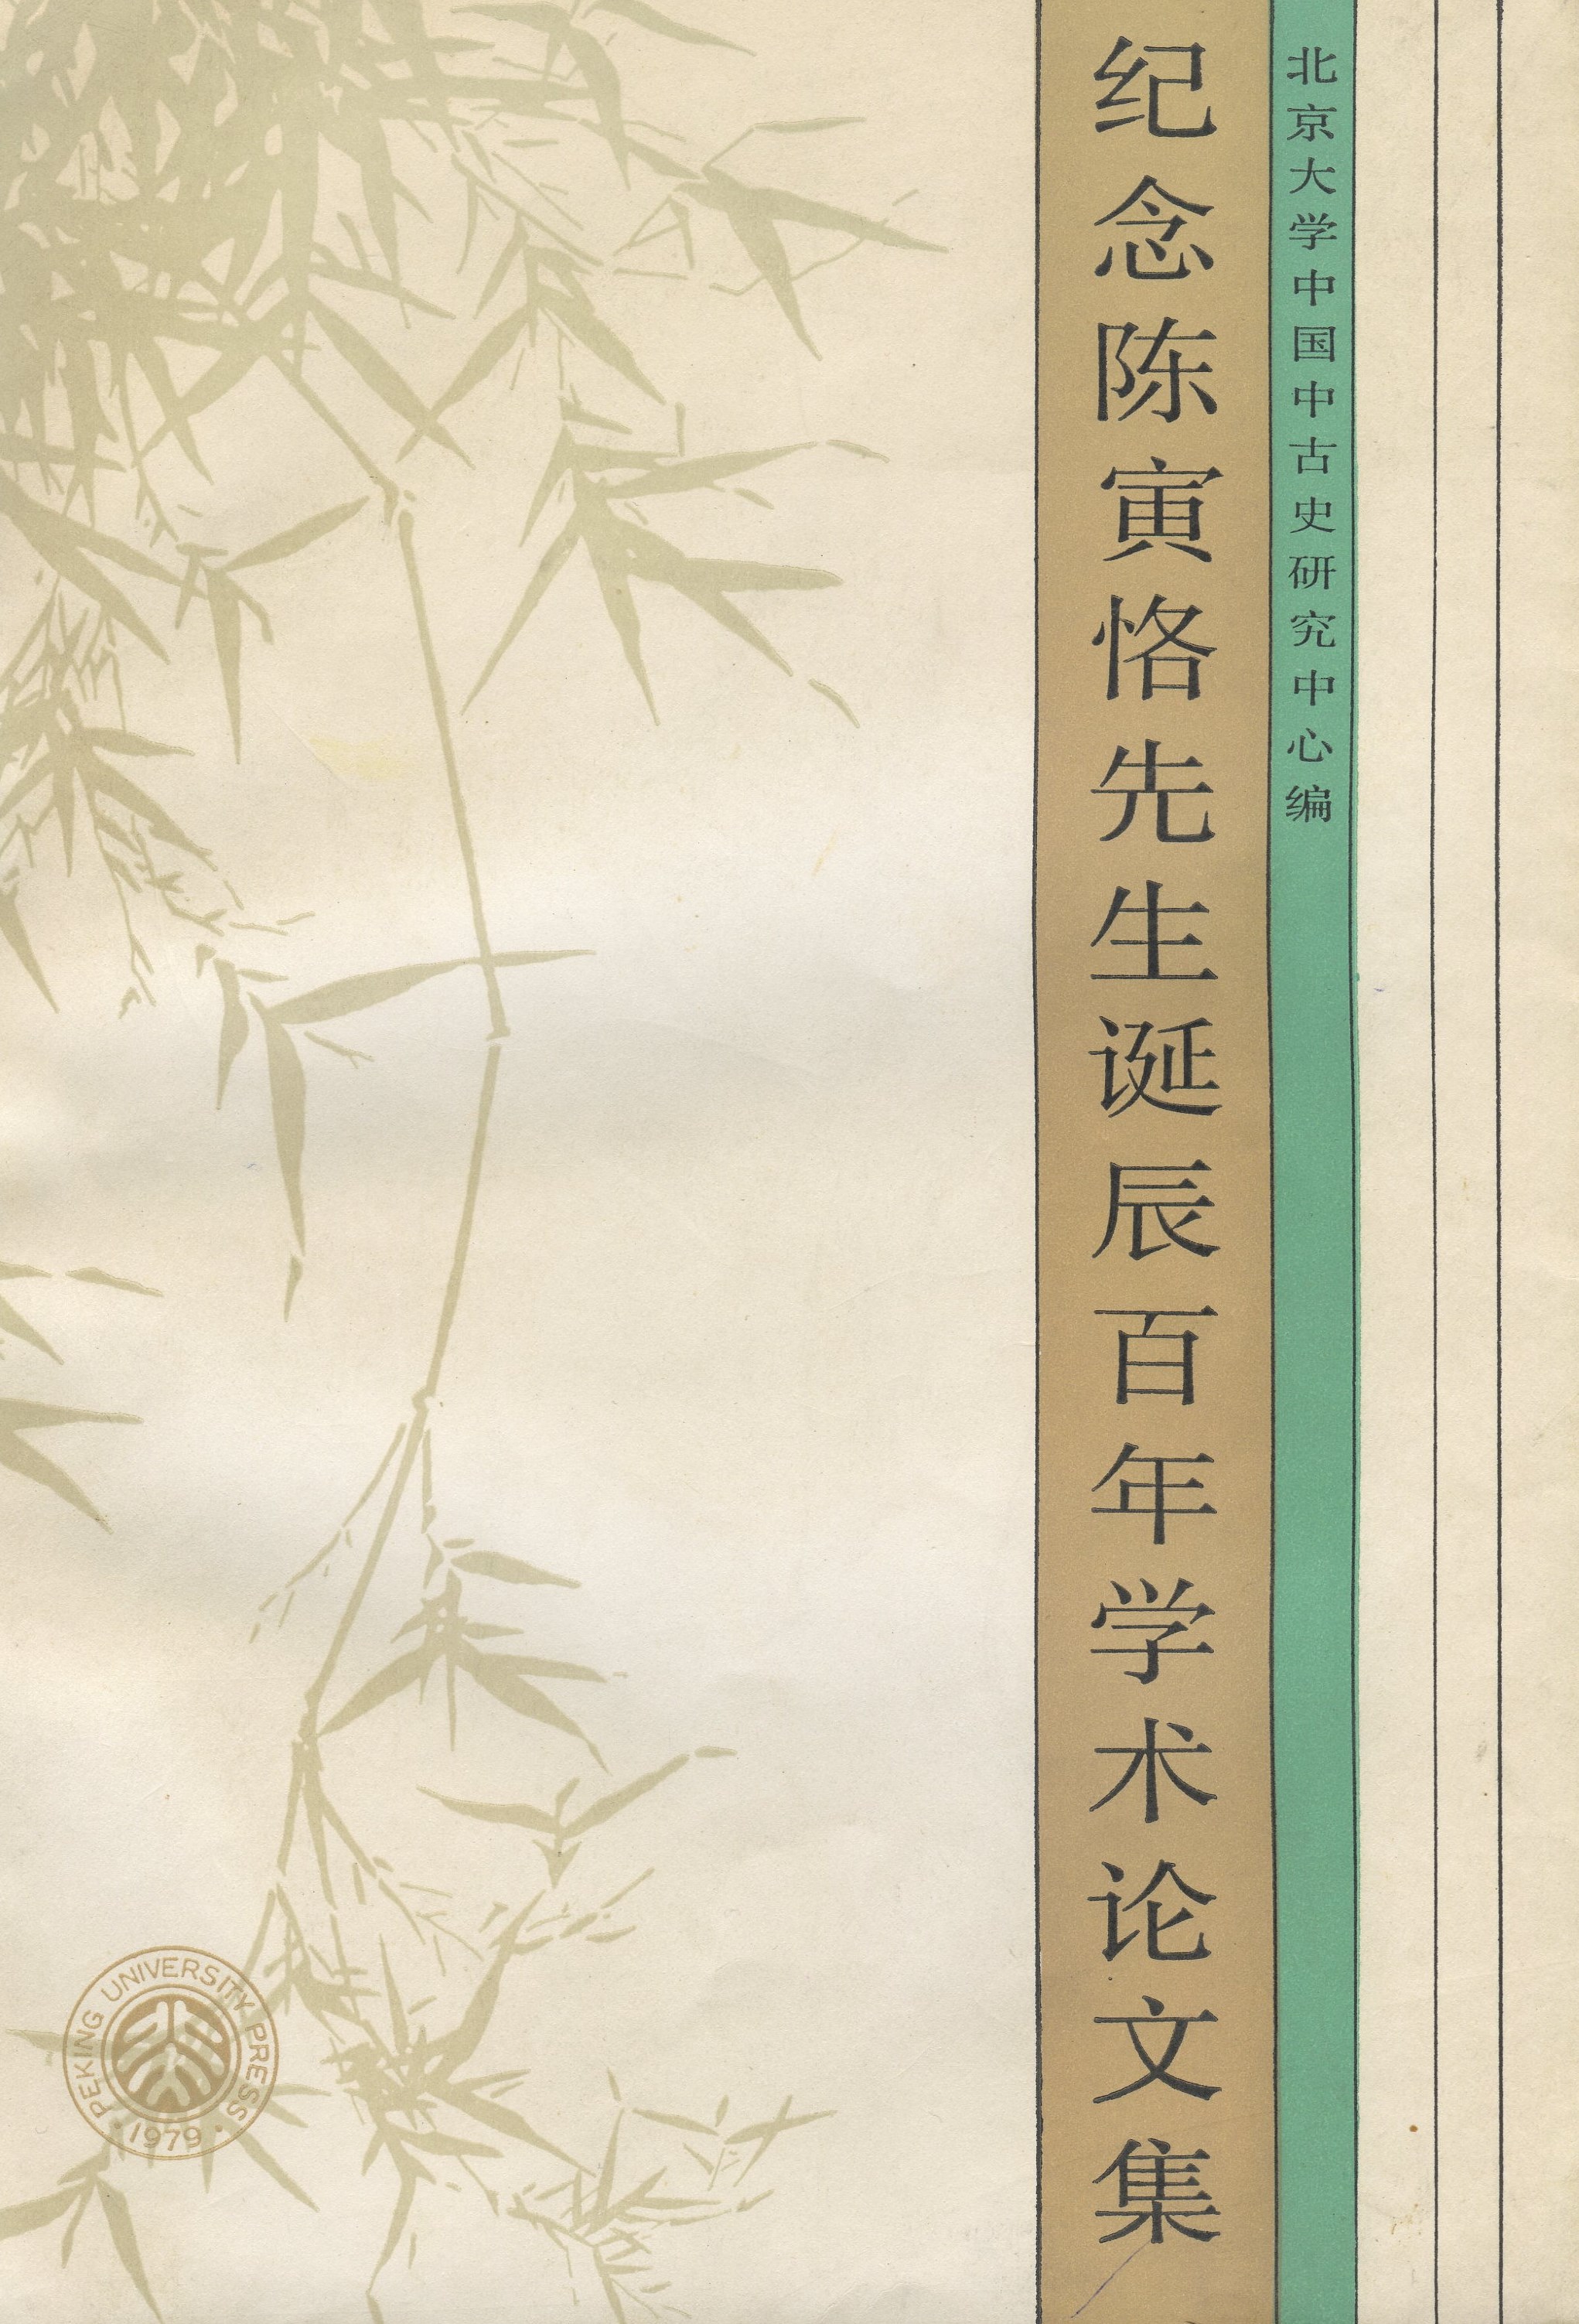 北京大学中国中古史研究中心编
纪念陈寅恪先生诞辰百年学术论文集
PEKING UNIVERSITY PRESS
·1979·